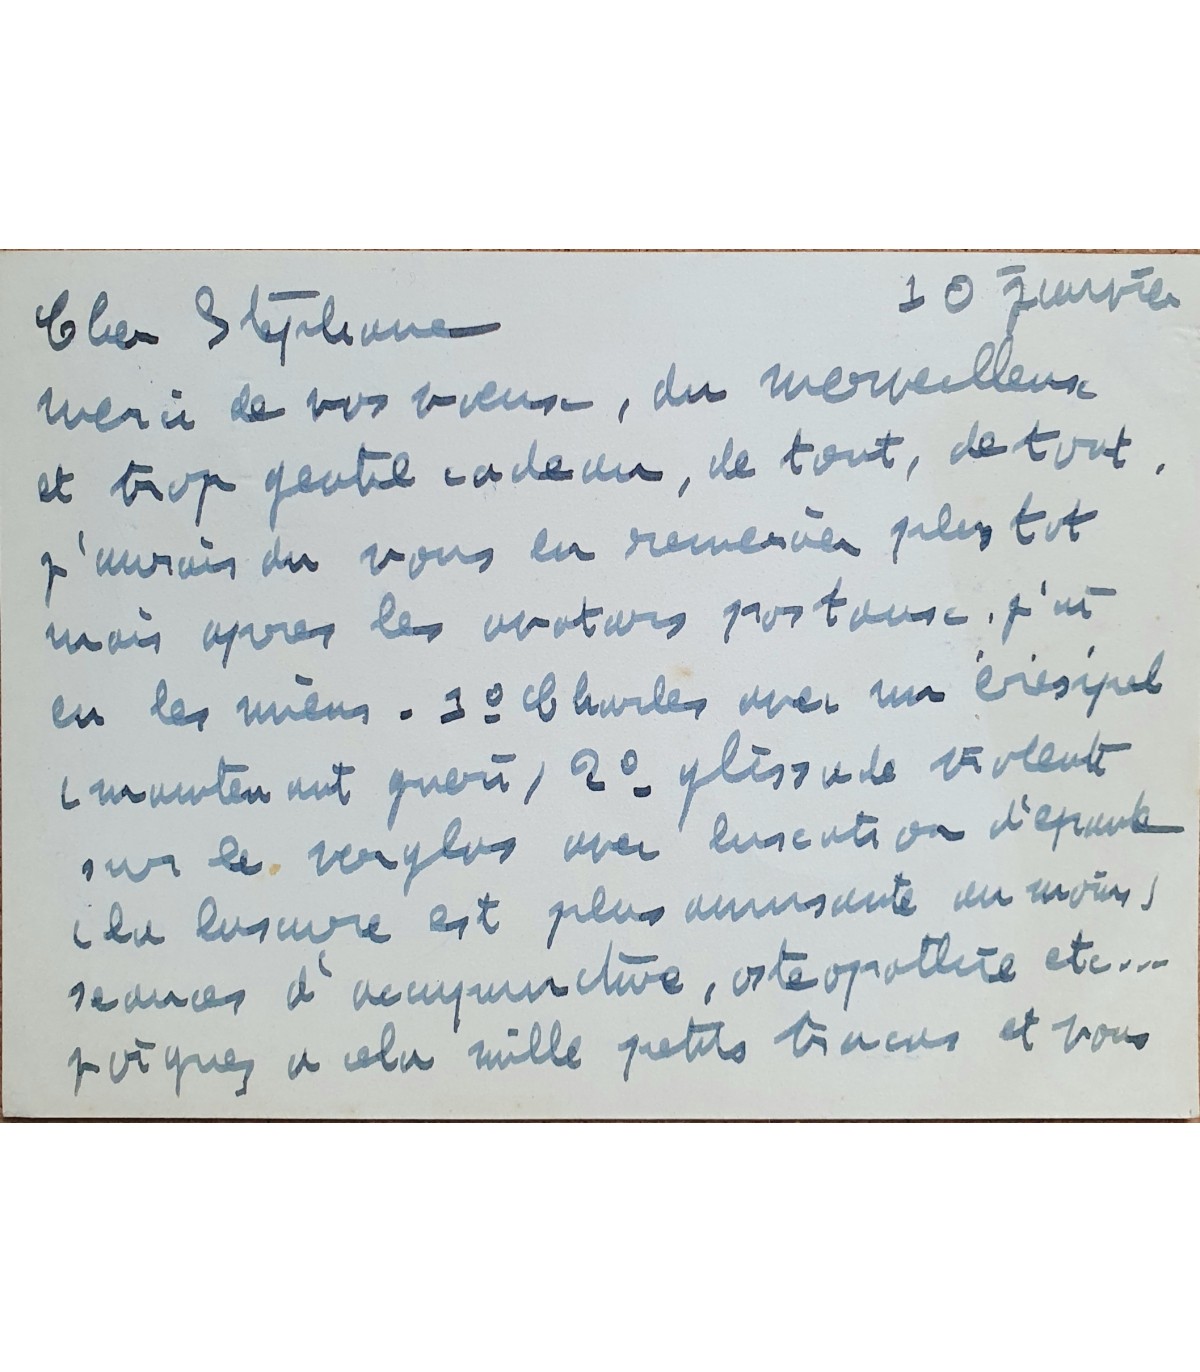 10 janvier
Cher Stéphane
merci de vos vœux, du merveilleux
et trop gentil cadeau, de tout, de tout.
j'aurais du vous en remercier plus tot
mais apres les avatars postaux. j'ai
eu les miens. 1º Charles avec un érésipel
(maintenant gueri) 2º glissade violente
sur le verglas avec luxation d'epaule
(la luxure est plus amusante au moins)
seances d'acupuncture, osteopathie etc...
joignez a cela mille petits tracas et vous